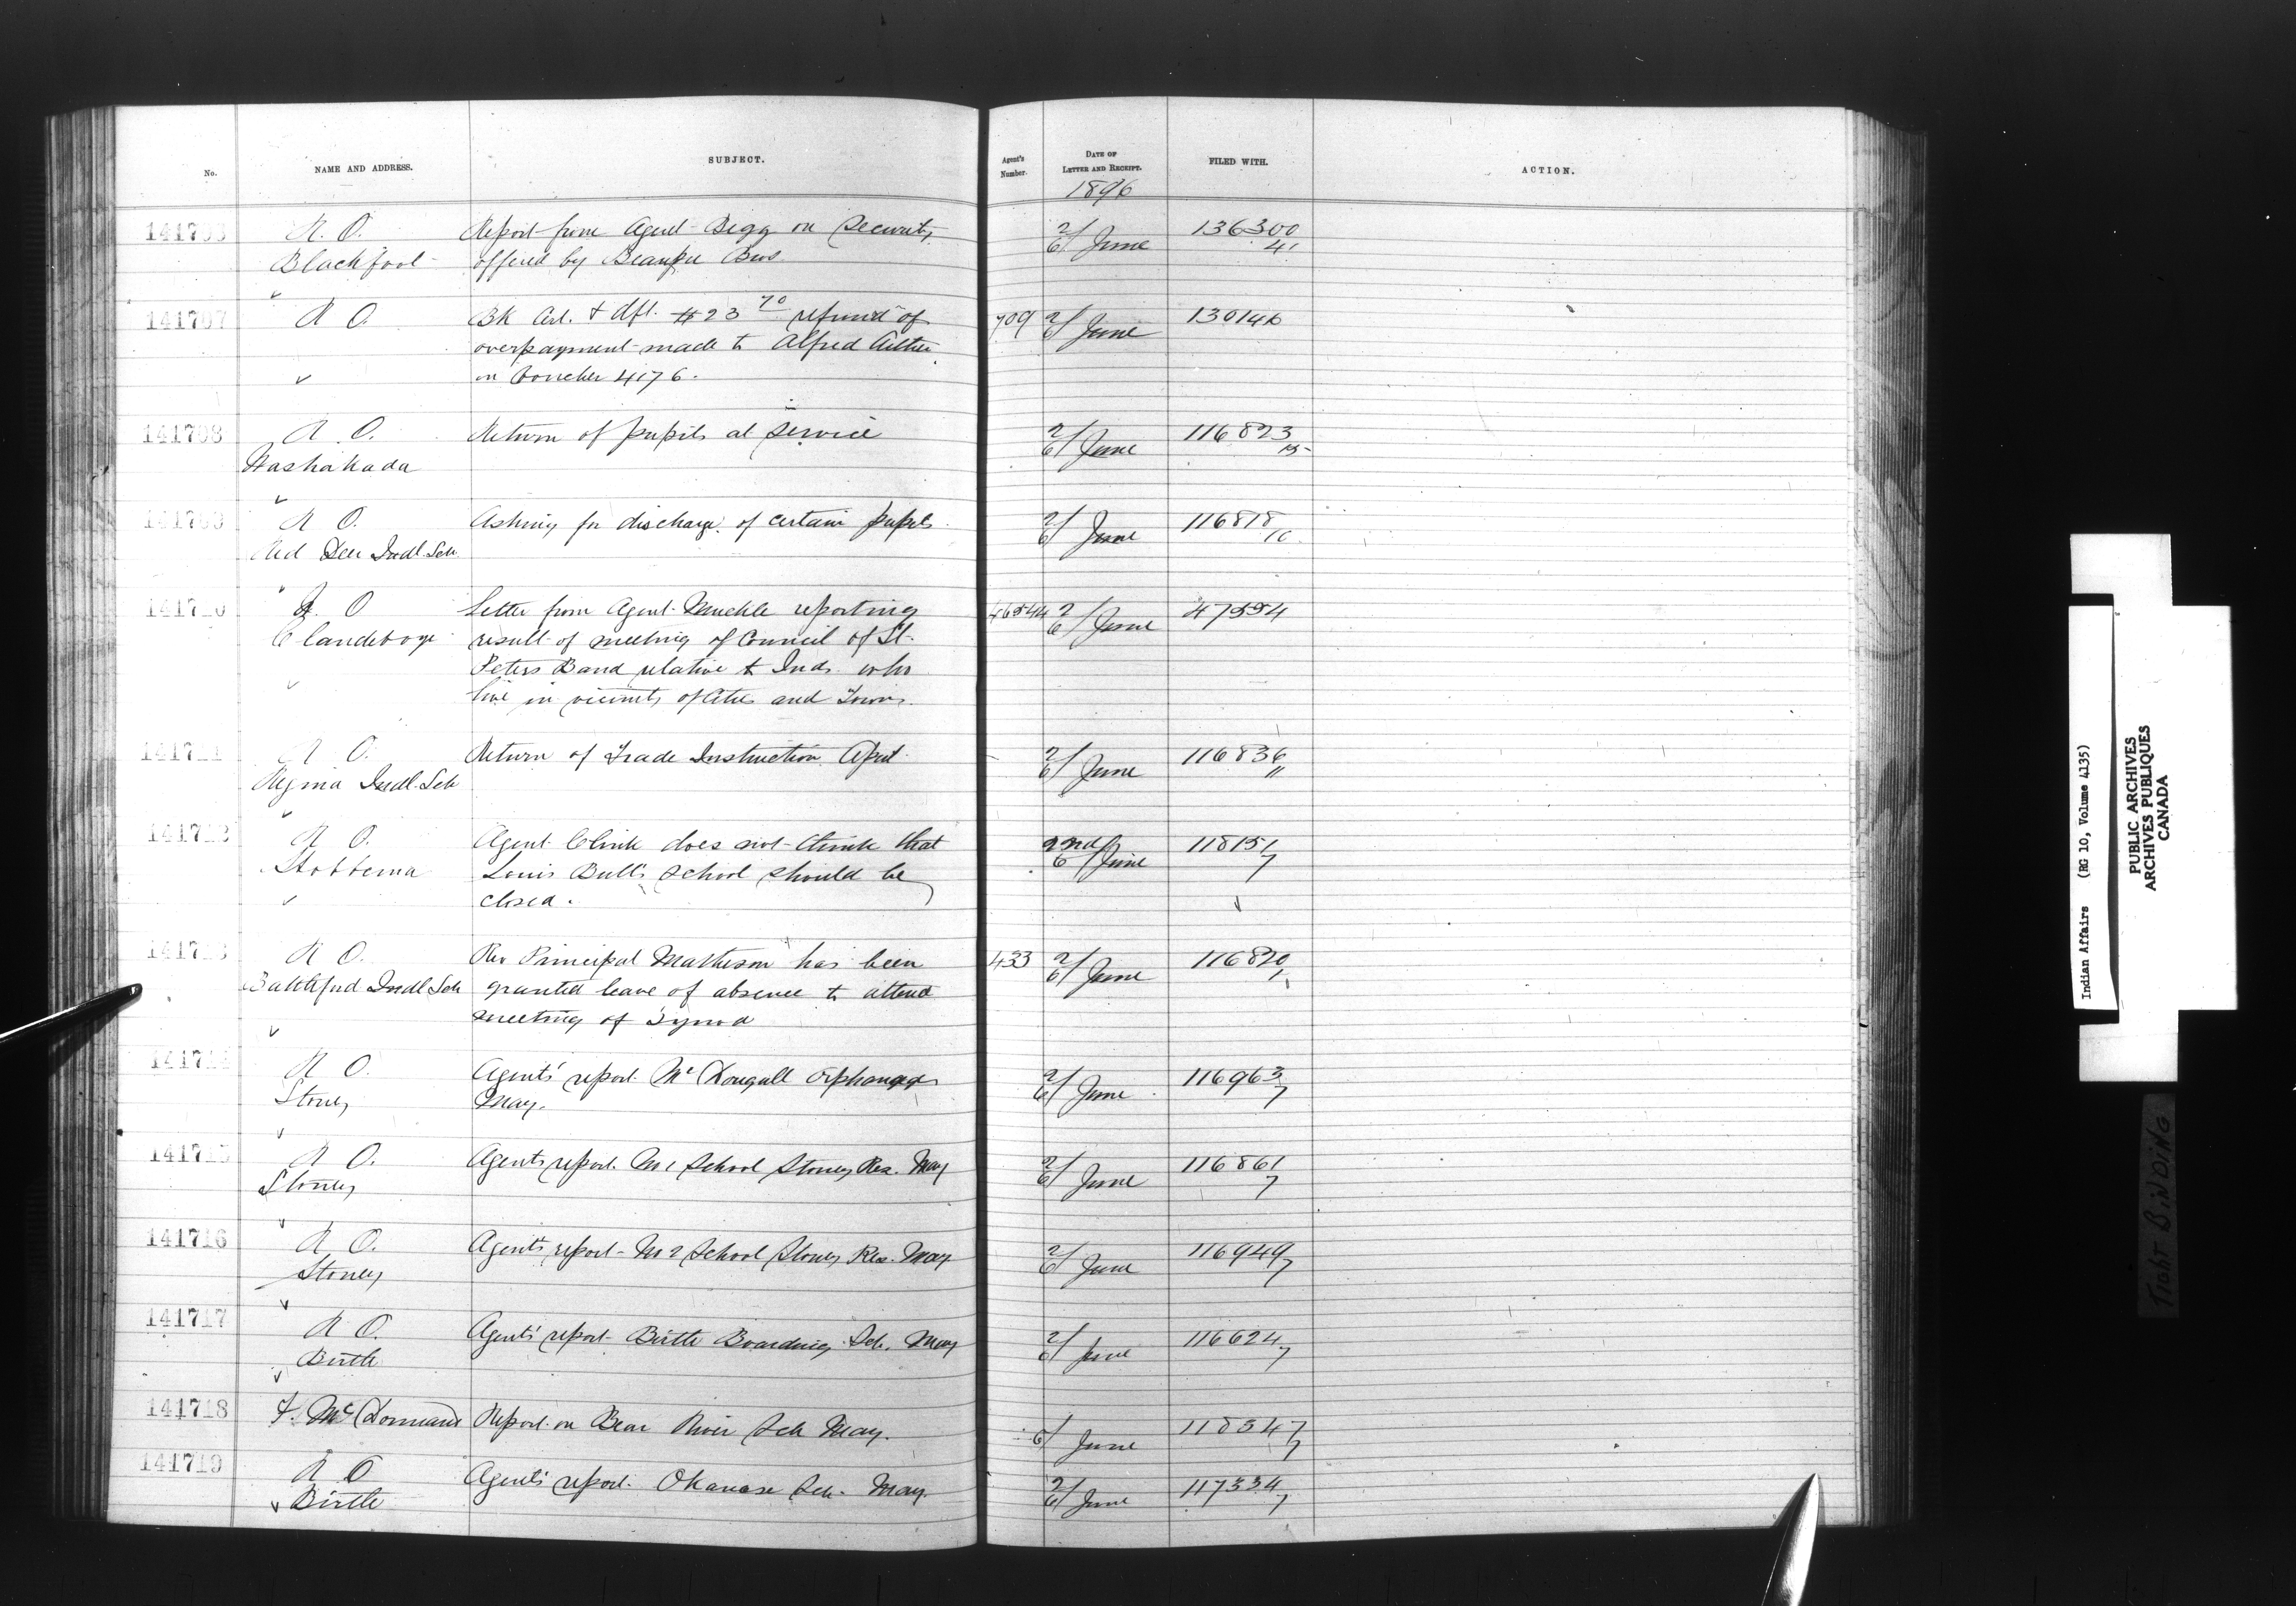 No. NAME AND ADDRESS. SUBJECT. Agent's Number. DATE OF LETTER AND RECEIPT. FILED WITH. ACTION.
1896
R. O. Report from Agent Begg on Security 2/6 June 136300
Blackfoot offered by Beaupre Bros 41
141707 R O. Bk Cert. & dft. $23 70 refund of 709 2/6 June 130146
overpayment made to Alfred
on Voucher 4176.
141708 R. O. Return of pupils at service 2/6 June 116823
Washakada 15
R O. Asking for discharge of certain pupils 2/6 June 116818
Red Deer Indl. Sch 16
141710 R. O Letter from Agent Muckle reporting 46544 2/6 June 47554
Clandeboye result of meeting of Council of St.
Peters Band relative to Inds. who
live in vicinity of Cities and Towns.
141711 R O. Return of Trade Instruction April 2/6 June 116836
Regina Indl. Sch 11
141712 R O. Agent Clink does not think that 2nd/6 June 118151
Hobbema Louis Bull's School should be 7
closed.
141713 R O. Rev Principal Matheson has been 433 2/6 June 116820
Battleford Indl Sch granted leave of absence to attend 1
meeting of Synod
141714 R O. Agents' report McDougall Orphanage 2/6 June 116963
Stoney May. 7
141715 R O. Agents report No 1 School Stoney Res. May 2/6 June 116861
Stoney 7
141716 R O. Agents report No 2 School Stoney Res. May 2/6 June 116949
Stoney 7
141717 R O. Agents' report Birtle Boarding Sch. May 2/6 June 116624
Birtle 7
141718 F. McDormand Report on Bear River Sch May. 1/6 June 118347
7
141719 R O Agents' report Okanase Sch. May. 2/6 June 117334
Birtle 7
Indian Affairs (RG 10, Volume 4135)
PUBLIC ARCHIVES
ARCHIVES PUBLIQUES
CANADA
TIGHT BINDING